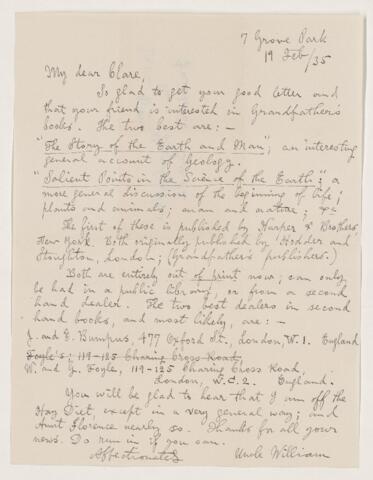 7 Grove Park
19 Feb/35
My dear Clare,
So glad to get your good letter and
that your friend is interested in Grandfather's
books. The two best are: —
"The Story of the Earth and Man", an interesting
general account of Geology.
"Salient Points in the Science of the Earth"; a
more general discussion of the beginning of life;
plants and animals; man and nature; &c
The first of these is published by Harper & Brothers,
New York. Both originally published by Hodder and
Stoughton, London; (Grandfather's publishers.)
Both are entirely out of print now; can only
be had in a public library, or from a second
hand dealer. The two best dealers in second
hand books, and most likely, are: —
J. and E. Bumpus, 477 Oxford St., London, W.1. England
Foyle's; 119-125 Charing Cross Road,
W. and G. Foyle, 119-125 Charing Cross Road,
London, W.C.2. England.
You will be glad to hear that I am off the
Hay Diet, except in a very general way; and
Aunt Florence nearly so. Thanks for all your
news. Do run in if you can.
Affectionately
Uncle William